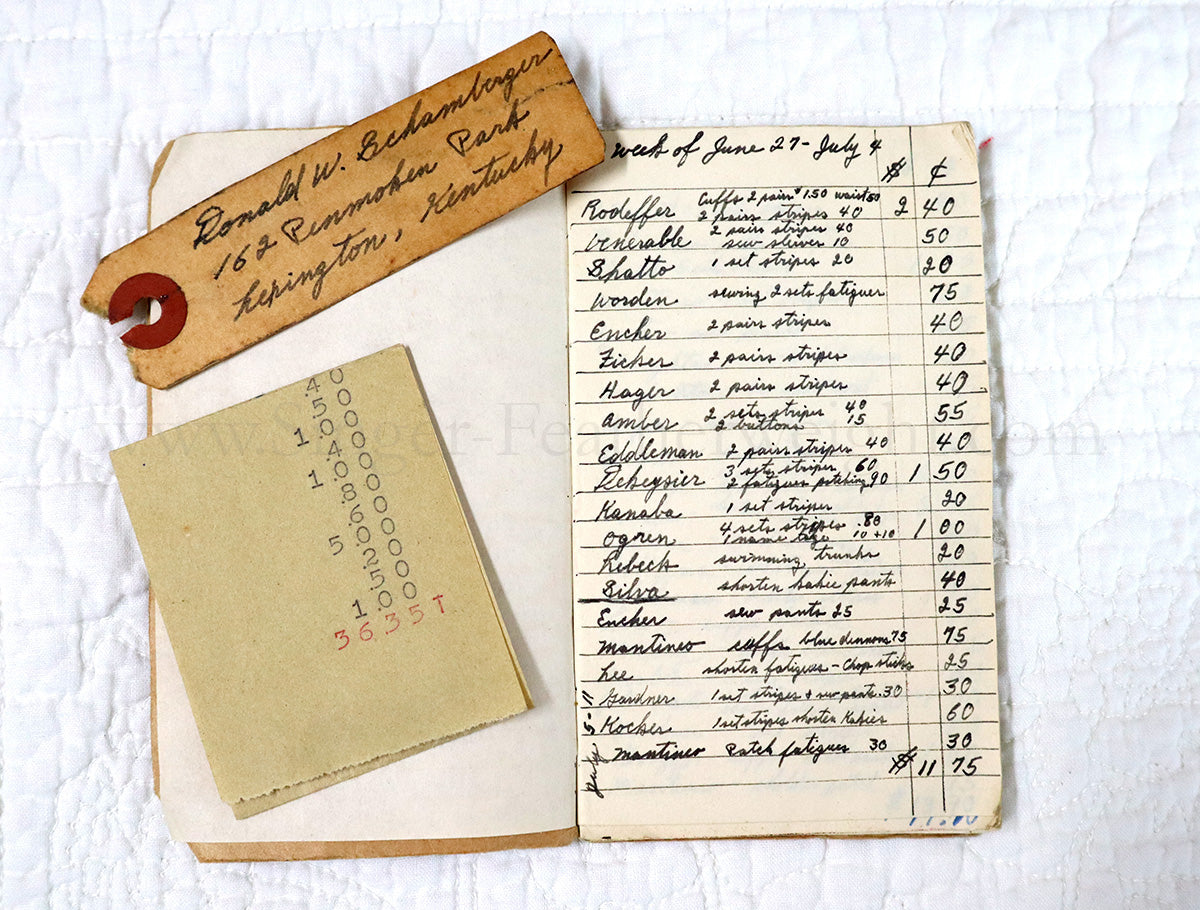 Donald W. Schamberger
162 Penmoken Park
Lexington,
Kentucky
.40
.50
1.00
.40
1.00
.80
.60
5.00
.25
.50
1.00
36.35T
Week of June 27 - July 4
$ ¢
Rodeffer Cuffs 2 pair $1.50 waist 50 2 40
2 pairs stripes 40
Venerable 2 pairs stripes 40 50
sew sleeve 10
Shatto 1 set stripes 20 20
Worden sewing 2 sets fatigues 75
Encher 2 pairs stripes 40
Zicker 2 pairs stripes 40
Hager 2 pairs stripes 40
Amber 2 sets stripes 40 55
2 buttons 15
Eddleman 2 pairs stripes 40 40
Dekeysier 3 sets stripes 60 1 50
2 fatigues patching 90
Kanaba 1 set stripes 20
Ogren 4 sets stripes .80 1 00
1 name tage 10 + 10
Rebeck swimming trunks 20
Silva shorten kakie pants 40
Encher sew pants 25 25
Mantineo cuffs blue dennoms 75 75
Lee shorten fatigues - Chop sticks 25
Gardner 1 set stripes + sew pants .30 30
Kocher 1 set stripes shorten Kakies 60
Mantineo Patch fatigues 30 30
$ 11 75
July 5-11
www.Singer-Featherweight.com